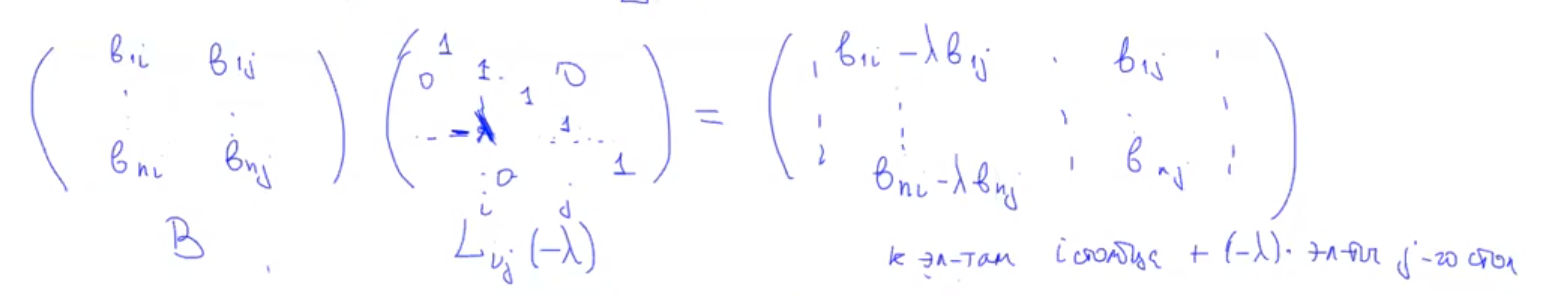 ( b₁ᵢ b₁ⱼ ) ( 1 ) = ( b₁ᵢ - λb₁ⱼ . b₁ⱼ )
0 1. 0
1
- λ 1
bₙᵢ bₙⱼ 0 1 bₙᵢ - λbₙⱼ bₙⱼ
i j
B Lᵢⱼ(-λ) к эл-там i столбца + (-λ)· эл-ты j-го стол